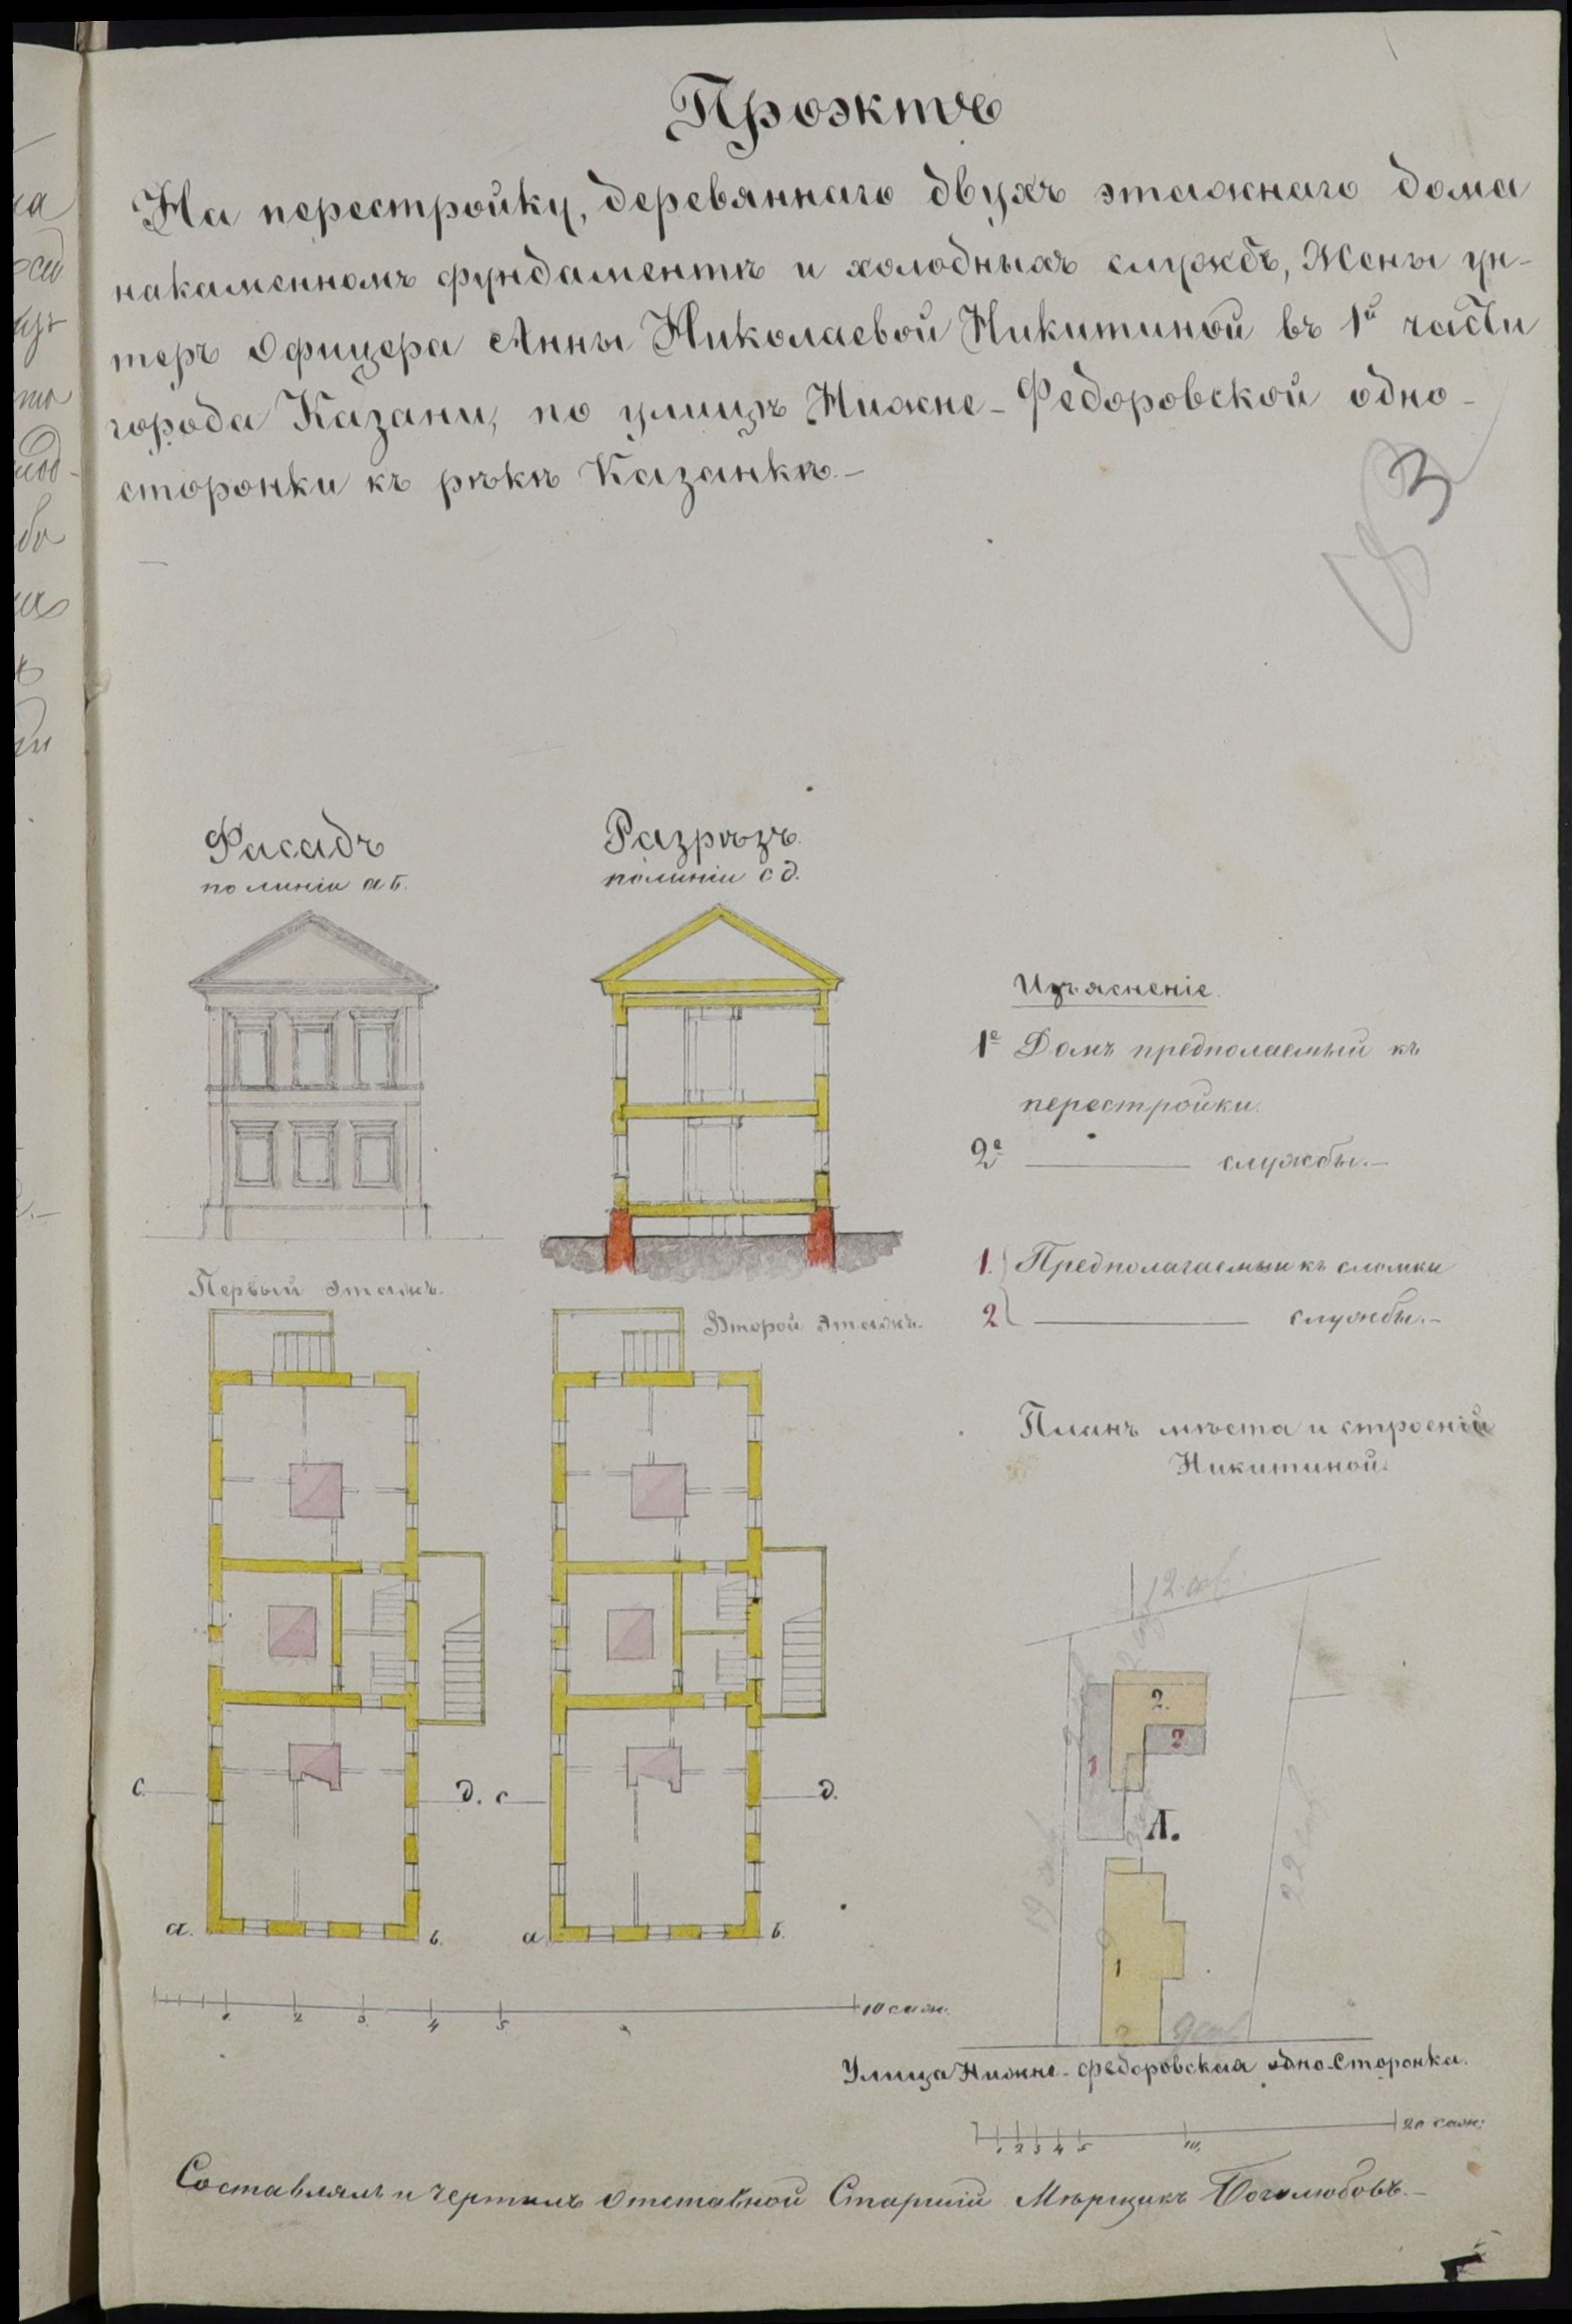 Проэктъ
На перестройку, деревяннаго двухъ этажнаго дома
накаменномъ фундаментѣ и холодныхъ службъ, Жены ун-
теръ Офицера Анны Николаевой Никитиной въ 1й части
города Казани, по улицѣ Нижне-Федоровской одно-
сторонки къ рѣкѣ Казанкѣ.-
3
Фасадъ
по линіи аб.
Разрѣзъ.
полиніи сд.
Изъясненіе.
1е Домъ предполаемый къ
перестройки.
2е ——— службы.-
1. Предполагаемыи къ сломки
2 ——— службы.-
Первый этажъ.
Второй этажъ.
Планъ мѣста и строеній
Никитиной.
12 саж.
2.
2
1
А.
1
с. д. с д.
а. б. а б.
19 саж.
22 саж.
9 саж.
1. 2 3. 4 5 10 саж.
Улица Нижне-федоровская одно-Сторонка.
1 2 3 4 5 10. 20 саж:
Составлялъ и чертилъ Отставной Старшій Мѣрщикъ Боголюбовъ.-